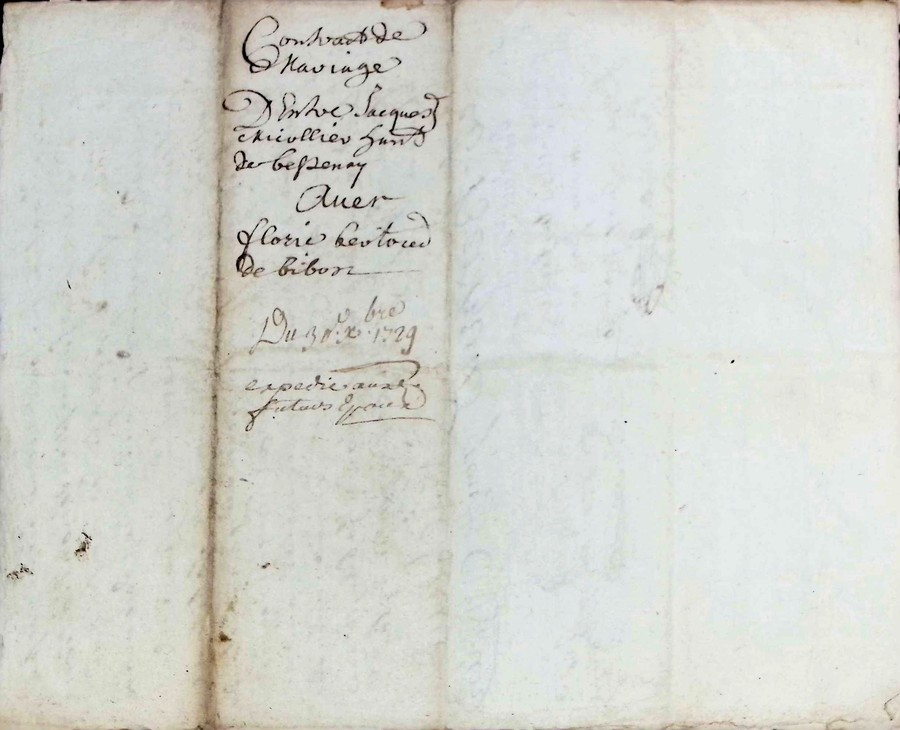 Contract de
Mariage
D'Entre Jacques
Micollier hunt
de bessenay
Avec
florie bertoud
de bibost
Du 30e xbre 1729
expedie aux
futurs Epoux